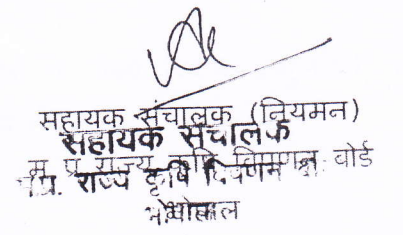 सहायक संचालक (नियमन)
सहायक संचालक
म. प्र. राज्य कृषि विपणन बोर्ड
म.प्र. राज्य कृषि विपणन
भोपाल